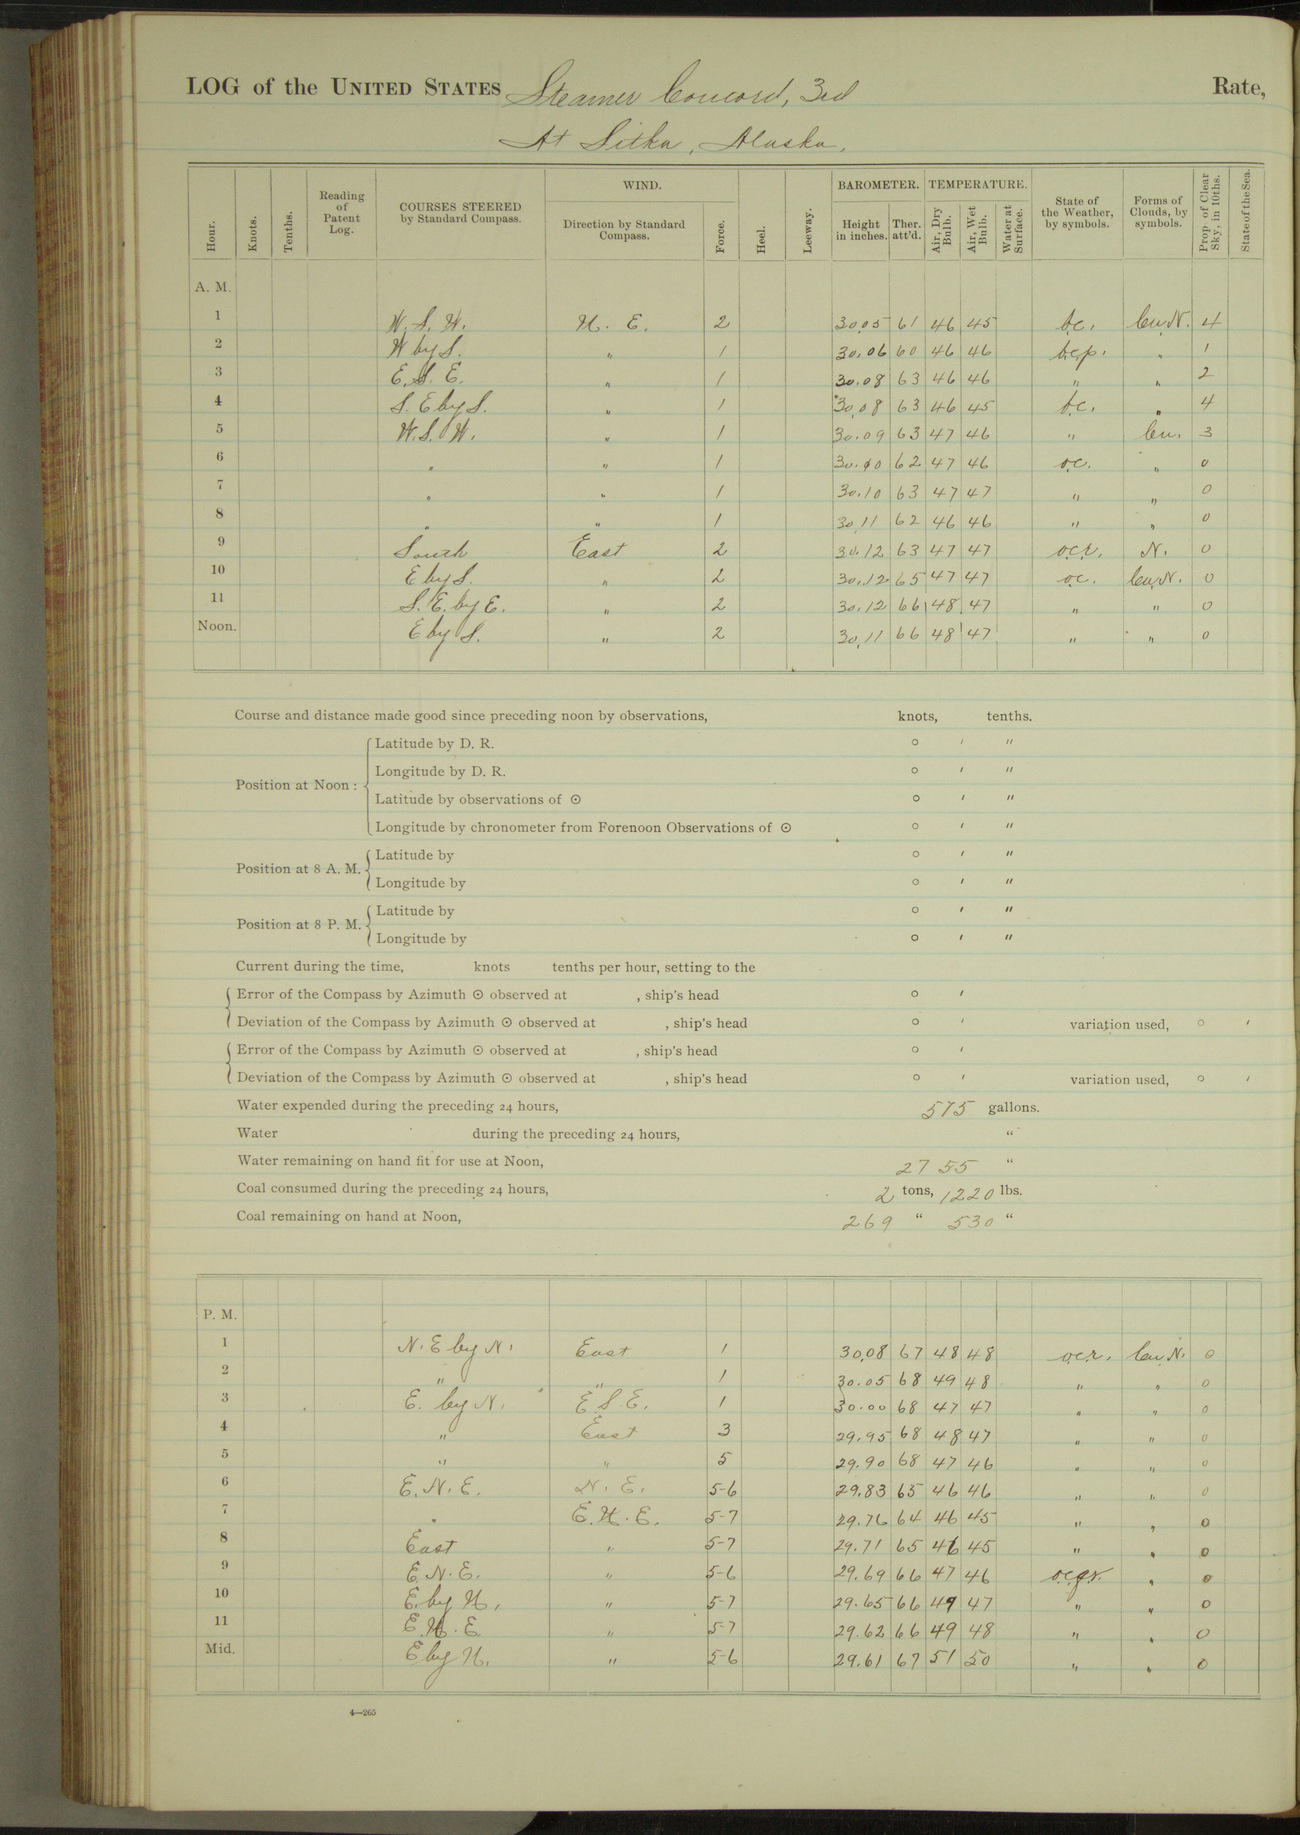 LOG of the UNITED STATES Steamer Concord, 3rd Rate,
At Sitka, Alaska.
Hour. Knots. Tenths. Reading of Patent Log. COURSES STEERED by Standard Compass. WIND. Direction by Standard Compass. Force. Heel. Leeway. BAROMETER. Height in inches. Ther. att'd. TEMPERATURE. Air, Dry Bulb. Air, Wet Bulb. Water at Surface. State of the Weather, by symbols. Forms of Clouds, by symbols. Prop. of Clear Sky, in 10ths. State of the Sea.
A. M.
1 W. S. W. N. E. 2 30.05 61 46 45 b.c. Cu.N. 4
2 W by S. " 1 30.06 60 46 46 b.c.p. " 1
3 E. S. E. " 1 30.08 63 46 46 " " 2
4 S. E by S. " 1 30.08 63 46 45 b.c. " 4
5 W. S. W. " 1 30.09 63 47 46 " Cu. 3
6 " " 1 30.10 62 47 46 o.c. " 0
7 " " 1 30.10 63 47 47 " " 0
8 " " 1 30.11 62 46 46 " " 0
9 South East 2 30.12 63 47 47 o.c.r. N. 0
10 E by S. " 2 30.12 65 47 47 o.c. Cu.N. 0
11 S. E. by E. " 2 30.12 66 48 47 " " 0
Noon. E by S. " 2 30.11 66 48 47 " " 0
Course and distance made good since preceding noon by observations, knots, tenths.
Position at Noon :
Latitude by D. R. ° ′ ″
Longitude by D. R. ° ′ ″
Latitude by observations of ☉ ° ′ ″
Longitude by chronometer from Forenoon Observations of ☉ ° ′ ″
Position at 8 A. M.
Latitude by ° ′ ″
Longitude by ° ′ ″
Position at 8 P. M.
Latitude by ° ′ ″
Longitude by ° ′ ″
Current during the time, knots tenths per hour, setting to the
Error of the Compass by Azimuth ☉ observed at , ship's head ° ′
Deviation of the Compass by Azimuth ☉ observed at , ship's head ° ′ variation used, ° ′
Error of the Compass by Azimuth ☉ observed at , ship's head ° ′
Deviation of the Compass by Azimuth ☉ observed at , ship's head ° ′ variation used, ° ′
Water expended during the preceding 24 hours, 575 gallons.
Water during the preceding 24 hours, "
Water remaining on hand fit for use at Noon, 2755 "
Coal consumed during the preceding 24 hours, 2 tons, 1220 lbs.
Coal remaining on hand at Noon, 269 " 530 "
P. M.
1 N. E by N. East 1 30.08 67 48 48 o.c.r. Cu.N. 0
2 " " 1 30.05 68 49 48 " " 0
3 E. by N. E. S. E. 1 30.00 68 47 47 " " 0
4 " East 3 29.95 68 48 47 " " 0
5 " " 5 29.90 68 47 46 " " 0
6 E. N. E. N. E. 5-6 29.83 65 46 46 " " 0
7 " E. N. E. 5-7 29.76 64 46 45 " " 0
8 East " 5-7 29.71 65 46 45 " " 0
9 E. N. E. " 5-6 29.69 66 47 46 o.c.q.r. " 0
10 E. by N. " 5-7 29.65 66 49 47 " " 0
11 E. N. E. " 5-7 29.62 66 49 48 " " 0
Mid. E by N. " 5-6 29.61 67 51 50 " " 0
4—265